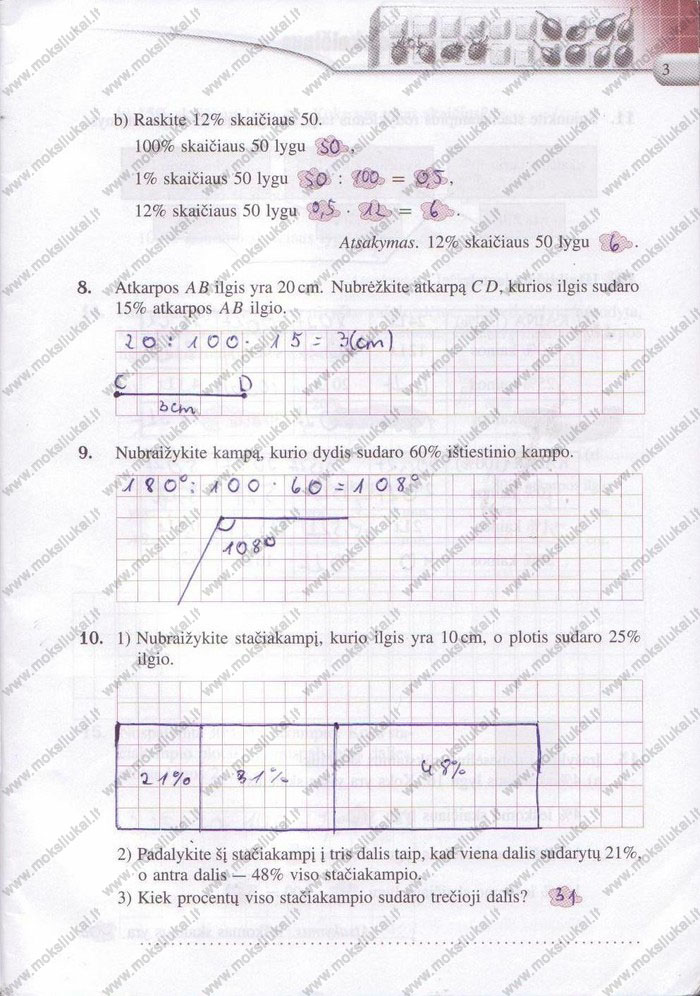 3
b) Raskite 12% skaičiaus 50.
100% skaičiaus 50 lygu 50,
1% skaičiaus 50 lygu 50 : 100 = 0,5,
12% skaičiaus 50 lygu 0,5 · 12 = 6.
Atsakymas. 12% skaičiaus 50 lygu 6.
8. Atkarpos AB ilgis yra 20 cm. Nubrėžkite atkarpą CD, kurios ilgis sudaro
15% atkarpos AB ilgio.
20 : 100 · 15 = 3(cm)
C D
3cm
9. Nubraižykite kampą, kurio dydis sudaro 60% ištiestinio kampo.
180° : 100 · 60 = 108°
108°
10. 1) Nubraižykite stačiakampį, kurio ilgis yra 10 cm, o plotis sudaro 25%
ilgio.
21% 31% 48%
2) Padalykite šį stačiakampį į tris dalis taip, kad viena dalis sudarytų 21%,
o antra dalis — 48% viso stačiakampio.
3) Kiek procentų viso stačiakampio sudaro trečioji dalis? 31
www.moksliukai.lt